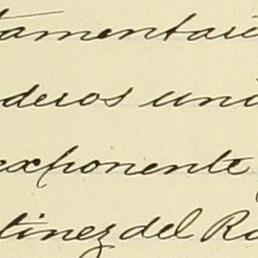 tamentari
deros uni
exponente
tinez del Ro